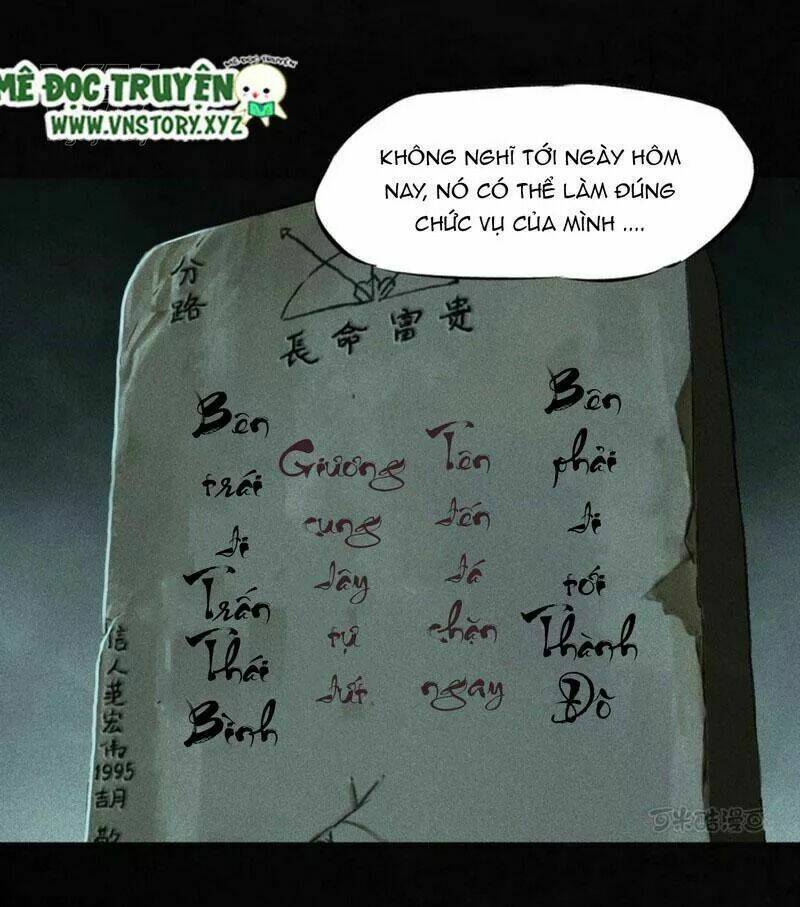 MÊ ĐỌC TRUYỆN
MÊ ĐỌC TRUYỆN
WWW.VNSTORY.XYZ
KHÔNG NGHĨ TỚI NGÀY HÔM
NAY, NÓ CÓ THỂ LÀM ĐÚNG
CHỨC VỤ CỦA MÌNH ....
分路
長命富貴
Bên trái đi Trấn Thái Bình
Giương cung dây tự đứt
Tên đến đá chặn ngay
Bên phải đi tới Thành Đô
信人范宏伟1995胡敬
可米酷漫画